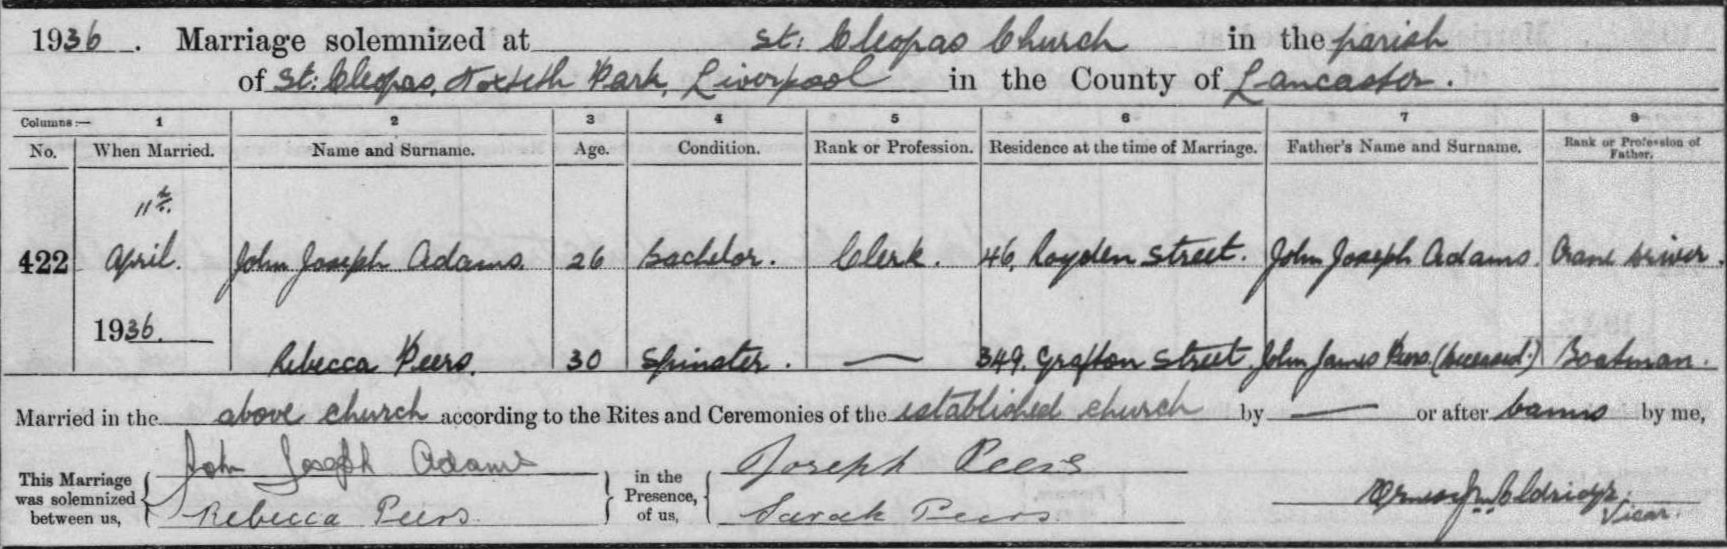 1936. Marriage solemnized at St: Cleopas Church in the parish
of St: Cleopas, Toxteth Park, Liverpool in the County of Lancaster.
Columns:— 1 2 3 4 5 6 7 8
No. When Married. Name and Surname. Age. Condition. Rank or Profession. Residence at the time of Marriage. Father's Name and Surname. Rank or Profession of Father.
11th
422 April. John Joseph Adams. 26 Bachelor. Clerk. 46, Royden Street. John Joseph Adams. Crane Driver.
1936.
Rebecca Peers. 30 Spinster. — 349, Grafton Street. John James Peers (deceased.) Boatman.
Married in the above church according to the Rites and Ceremonies of the established church by — or after banns by me,
This Marriage was solemnized between us, John Joseph Adams in the Presence, of us, Joseph Peers
Rebecca Peers Sarah Peers
Vicar.